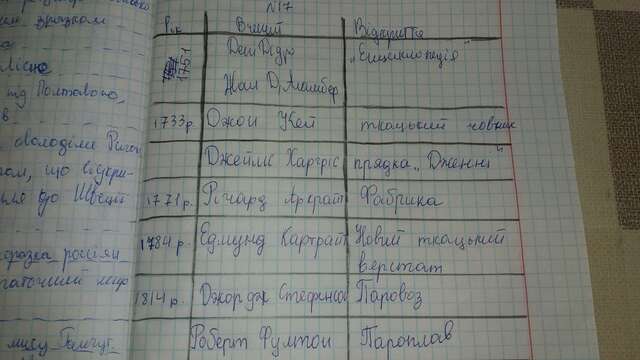 №17
Рік Вчений Відкриття
1751 Дені Дідро „Енциклопедія"
Жан Д'Аламбер
1733р. Джон Кей ткацький човник
Джеймс Харгрівс прядка „Дженні"
1771р. Річард Аркрайт Фабрика
1784р. Едмунд Картрайт Новий ткацький
верстат
1814р. Джордж Стефенсон Паровоз
Роберт Фултон Пароплав
зразком
під Полтавою,
в
володіли
що відкри-
до Швеції
поразка росіян
мису Гангут